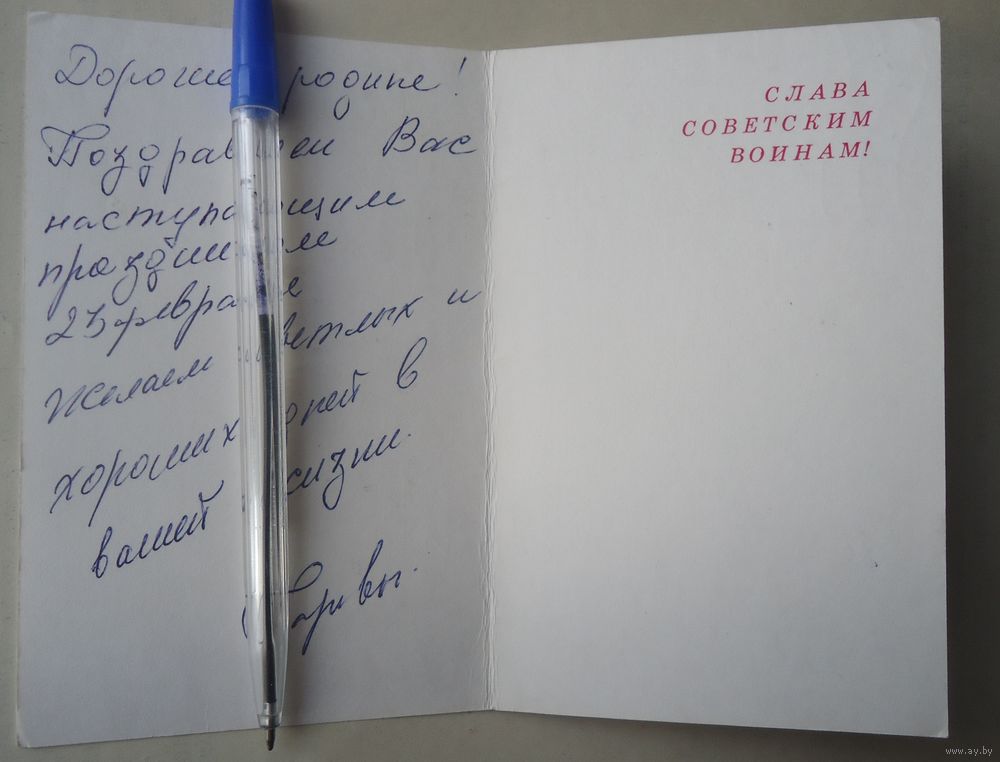 Дорогие родные!
Поздравляем Вас
наступающим
праздником
23 февраля
Желаем светлых и
хороших дней в
вашей жизни.
СЛАВА
СОВЕТСКИМ
ВОИНАМ!
www.ay.by